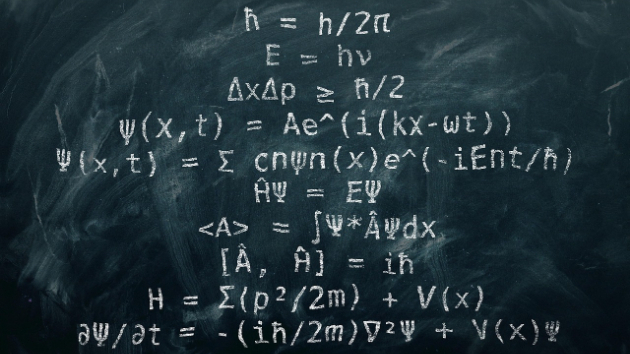 ħ = h/2π
E = hν
ΔxΔp ≥ ħ/2
ψ(x,t) = Ae^(i(kx-ωt))
Ψ(x,t) = Σ cnψn(x)e^(-iEnt/ħ)
ĤΨ = EΨ
<A> = ∫Ψ*ÂΨdx
[Â, Ĥ] = iħ
H = Σ(p²/2m) + V(x)
∂Ψ/∂t = -(iħ/2m)∇²Ψ + V(x)Ψ